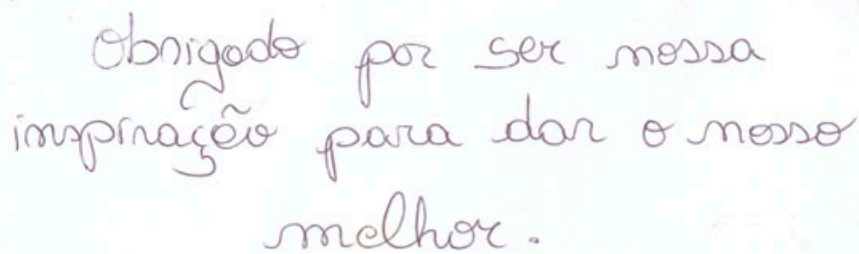 Obrigado por ser nossa
inspiração para dar o nosso
melhor.